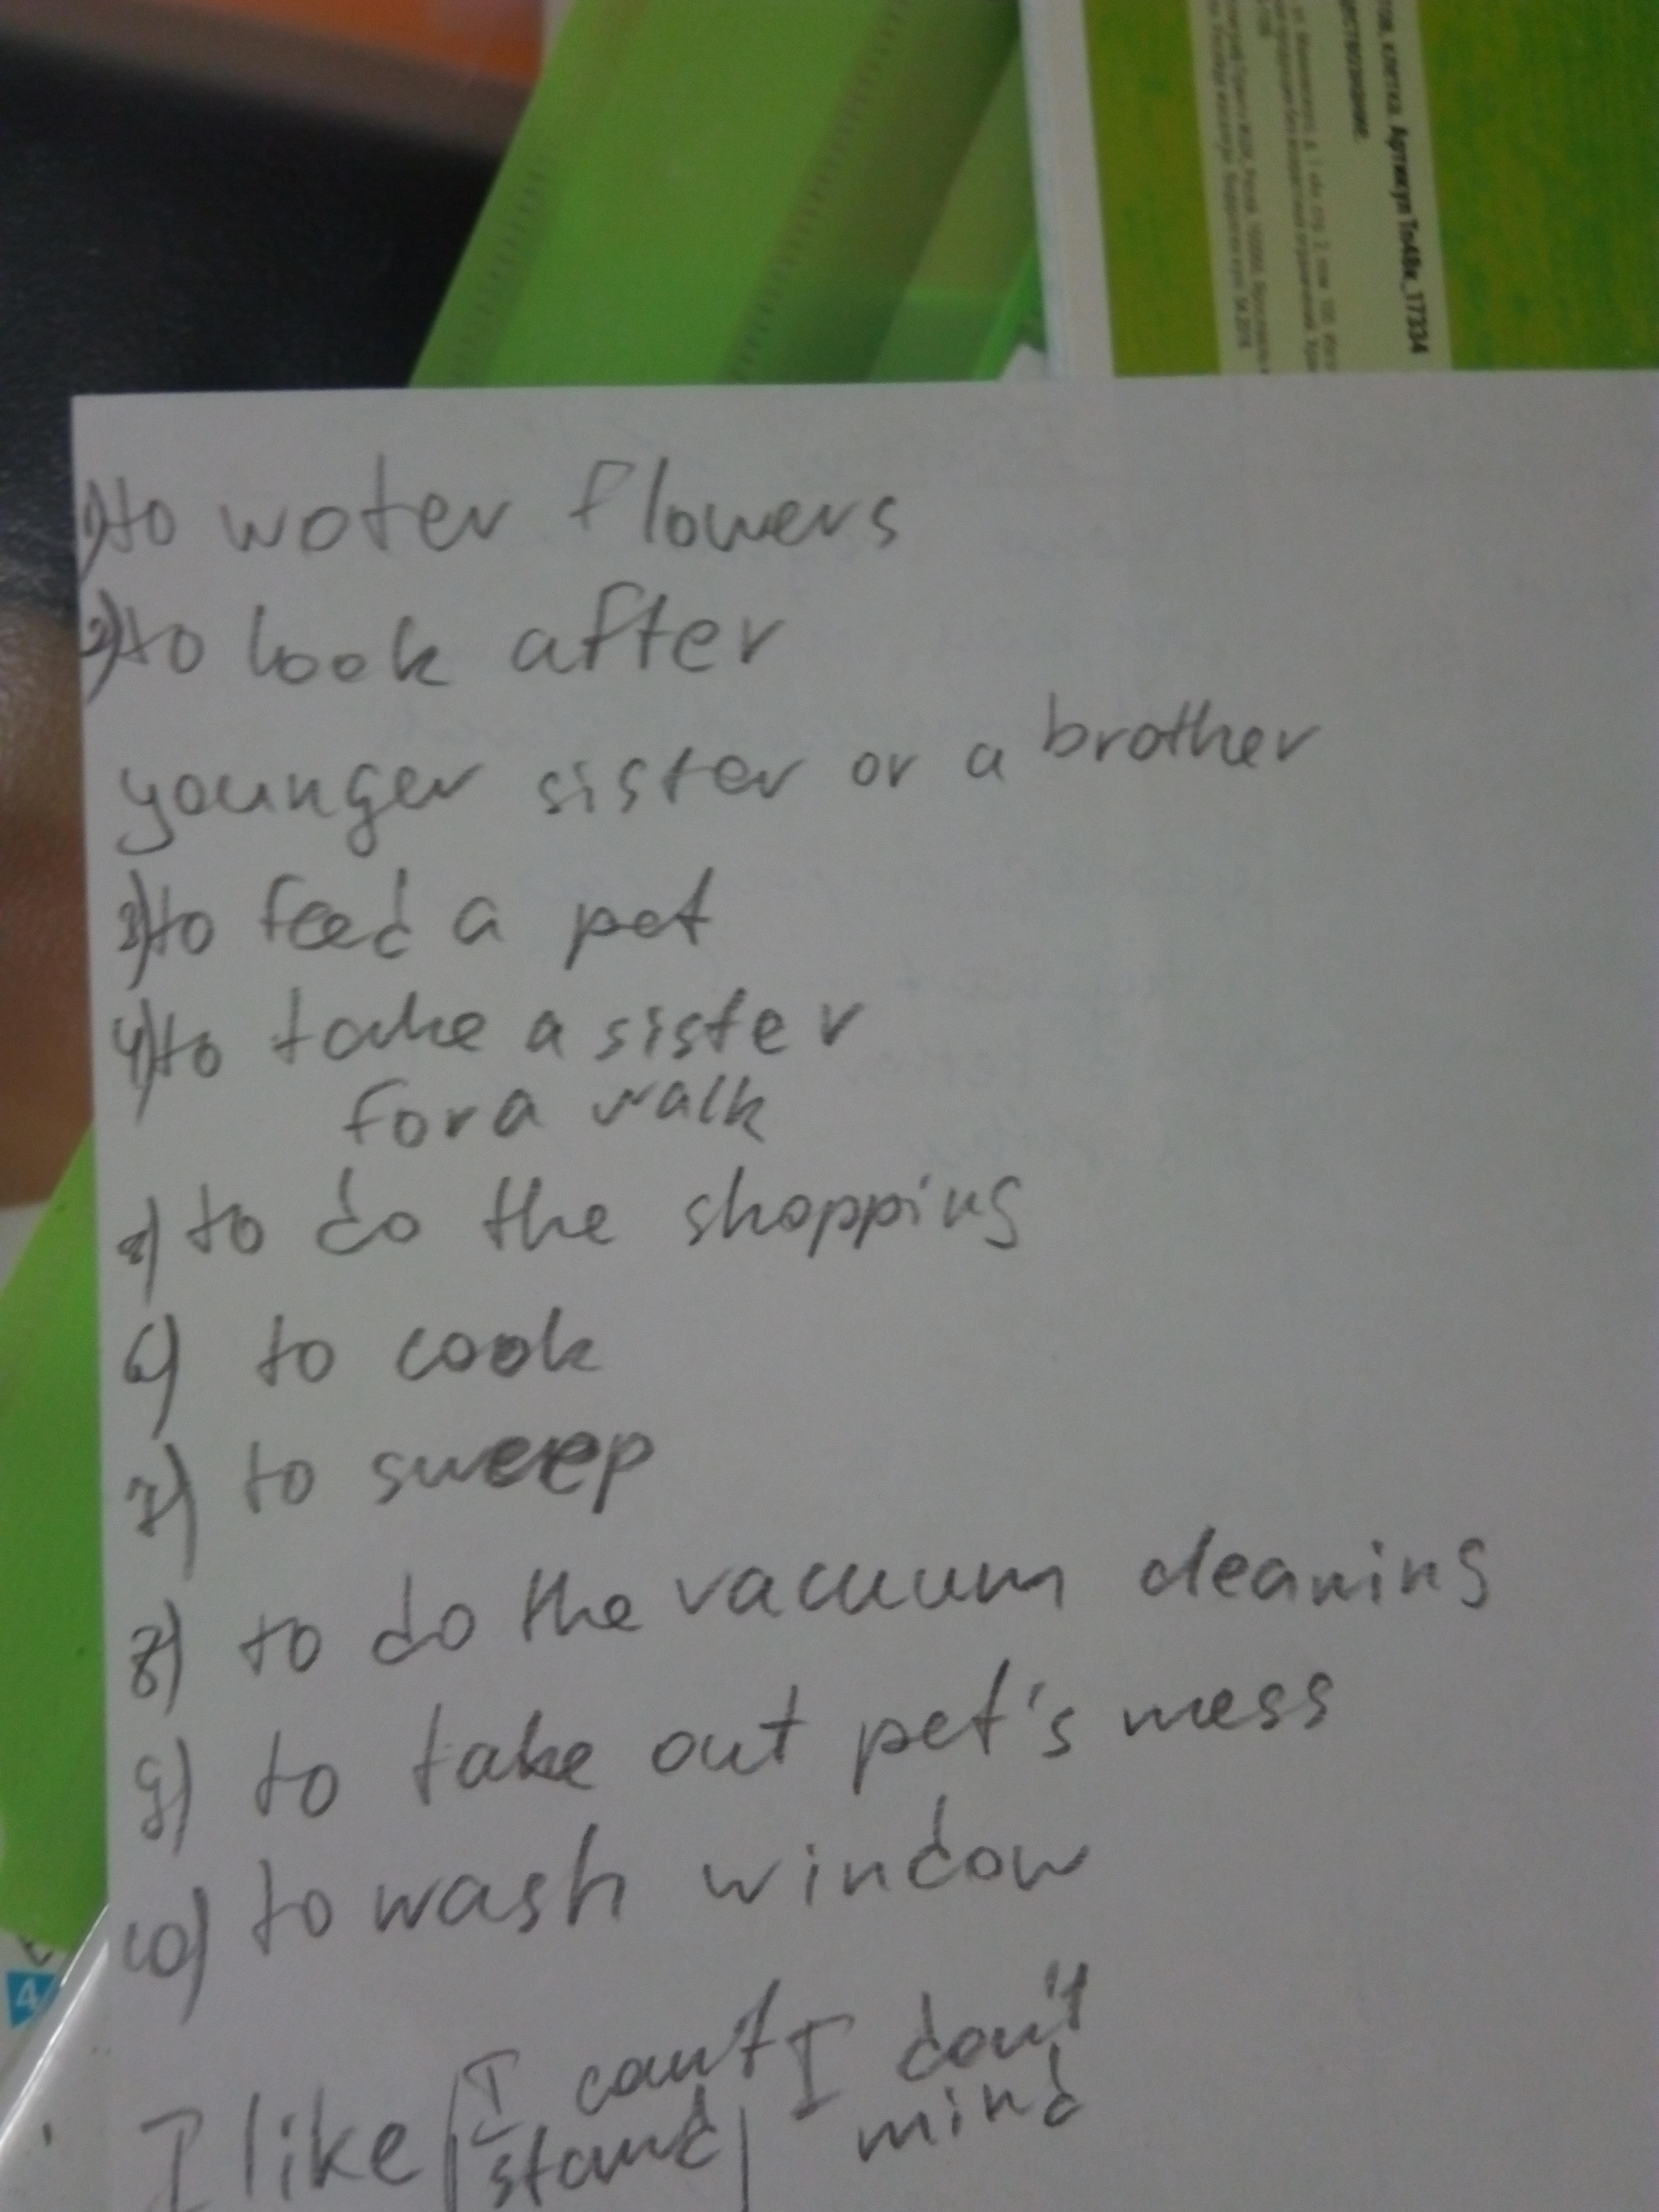 тов, клетка. Артикул Тп48к_17334
1) to woter flowers
2) to look after
younger sister or a brother
3) to feed a pet
4) to take a sister
for a walk
5) to do the shopping
6) to cook
7) to sweep
8) to do the vacuum cleaning
9) to take out pet's mess
10) to wash window
I like | I can't stand | I don't mind
4